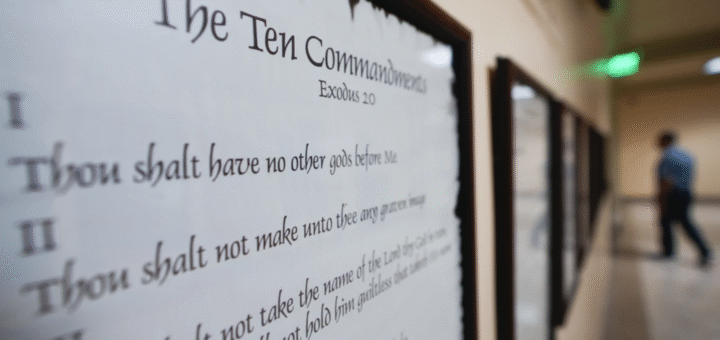 The Ten Commandments
Exodus 20
I
Thou shalt have no other gods before Me
II
Thou shalt not make unto thee any graven image
not take the name of the Lord thy God in vain
not hold him guiltless that taketh